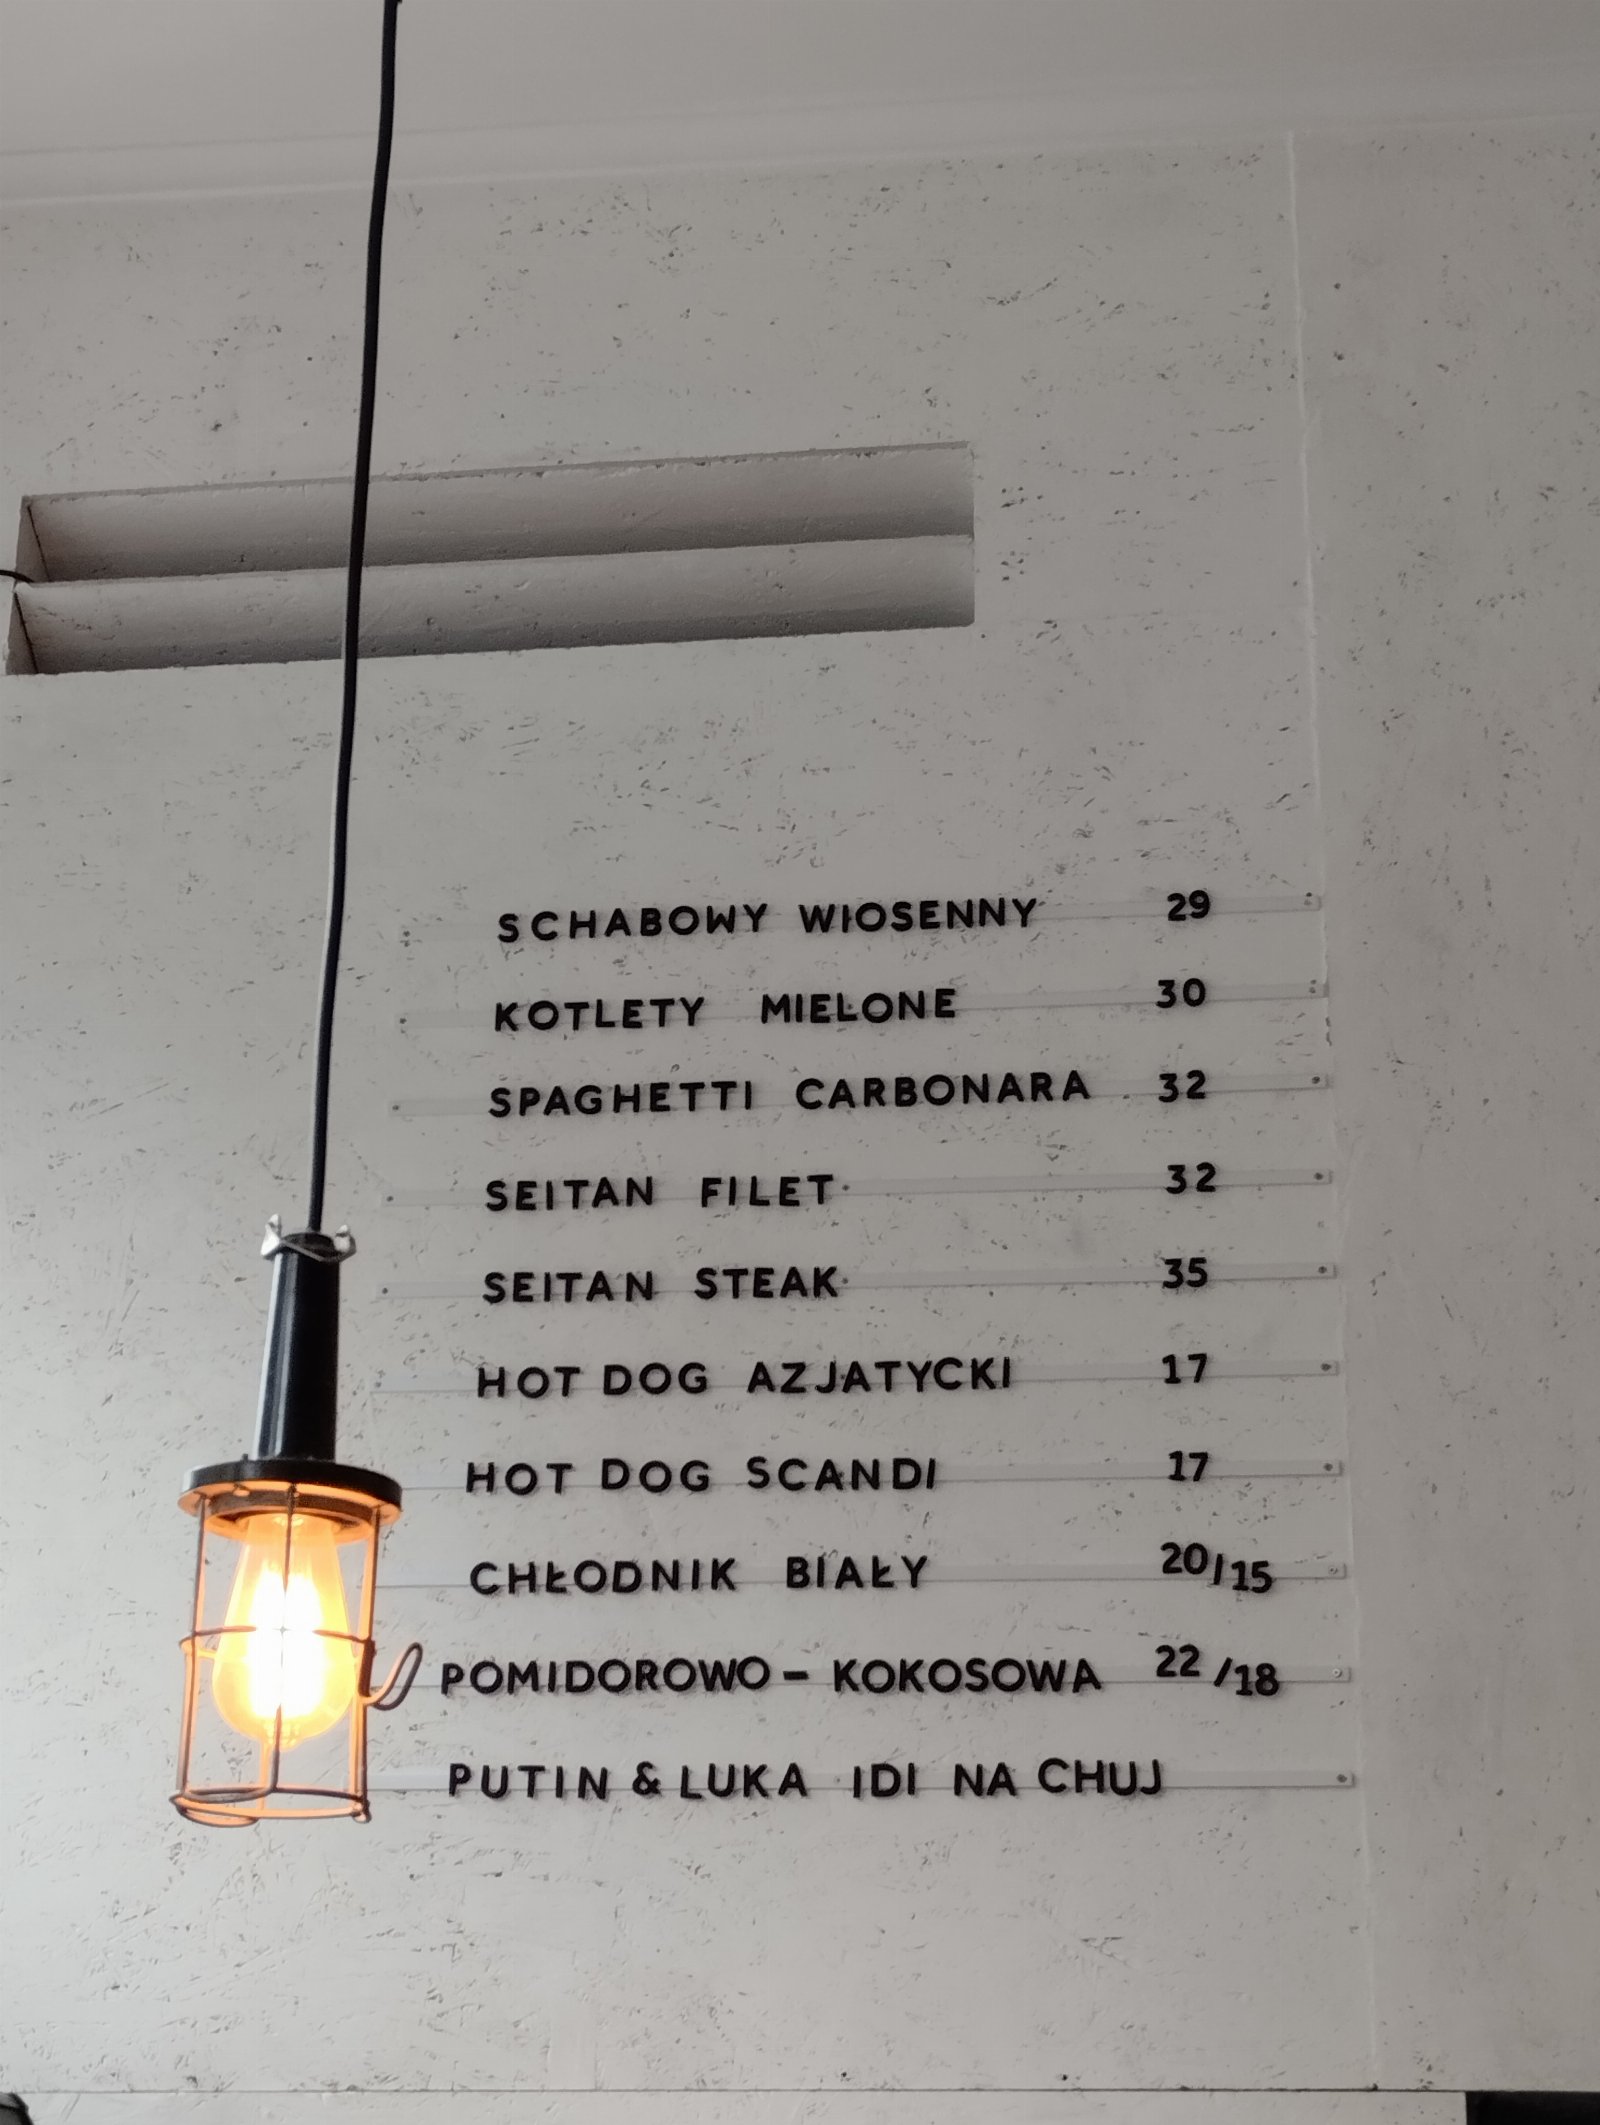 SCHABOWY WIOSENNY 29
KOTLETY MIELONE 30
SPAGHETTI CARBONARA 32
SEITAN FILET 32
SEITAN STEAK 35
HOT DOG AZJATYCKI 17
HOT DOG SCANDI 17
CHŁODNIK BIAŁY 20/15
POMIDOROWO - KOKOSOWA 22/18
PUTIN & LUKA IDI NA CHUJ